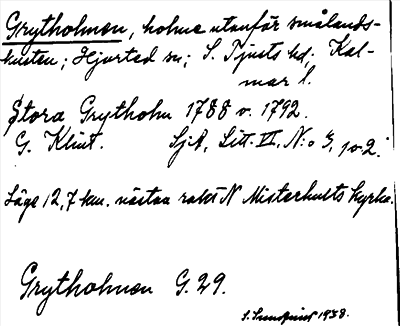 Grytholmen, holme utanför smålands-
kusten; Hjorted sn; S. Tjusts hd, Kal-
mar l.
Stora Grytholm 1788 v. 1792.
G. Klint. Sj.A, Litt. VI, N:o 3, pv. 2.
Läge 12,7 km. nästan rakt N Misterhults kyrka.
Grytholmen G. 29.
S. Sundqvist 1938.